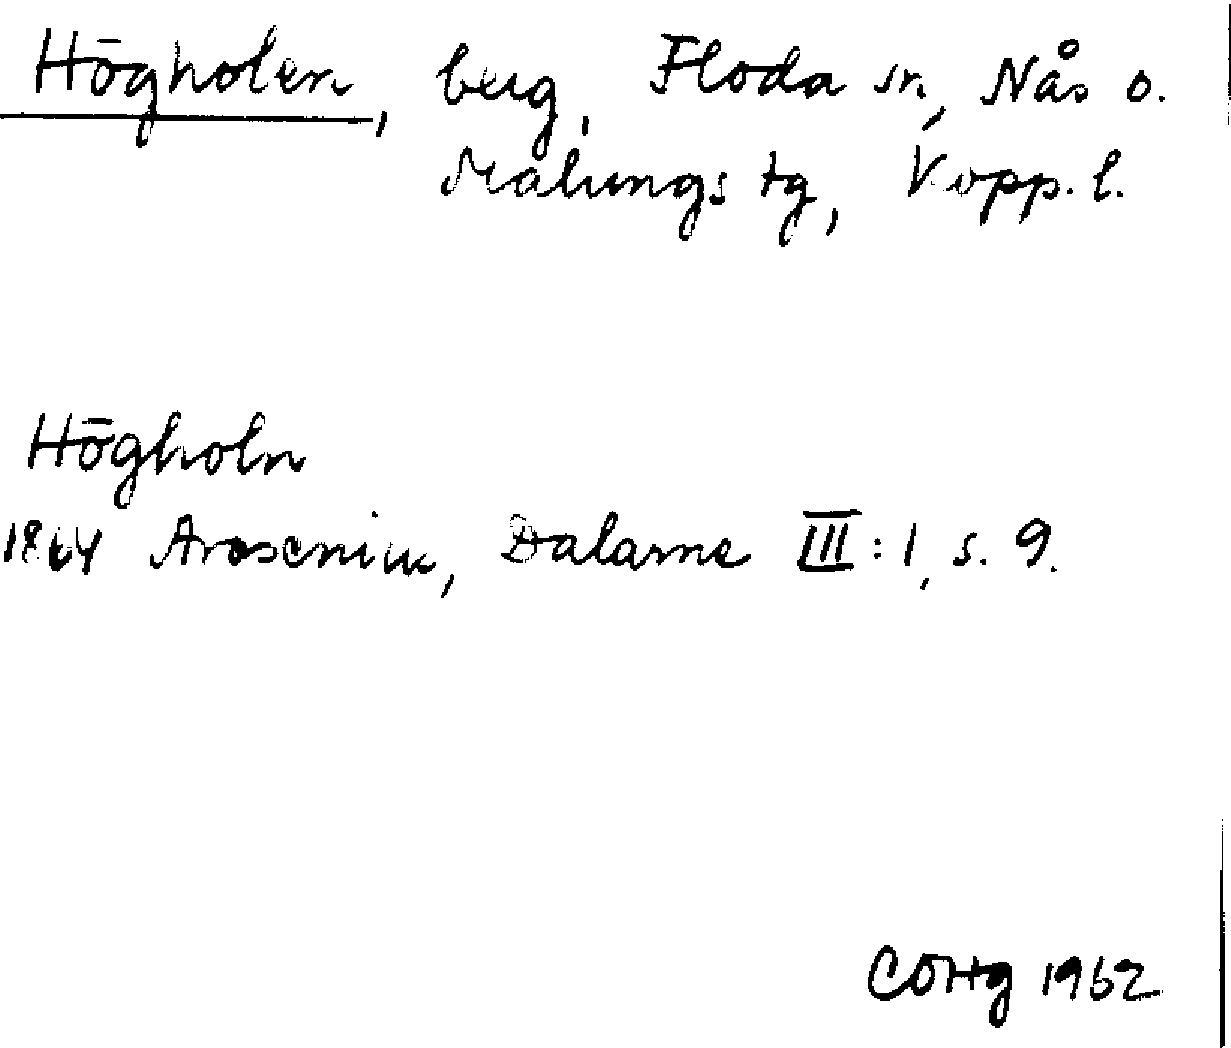 Högholen, berg, Floda sn, Nås o.
Malungs tg, Kopp. l.
Högholn
1864 Arosenius, Dalarne III:1, s. 9.
COHg 1962